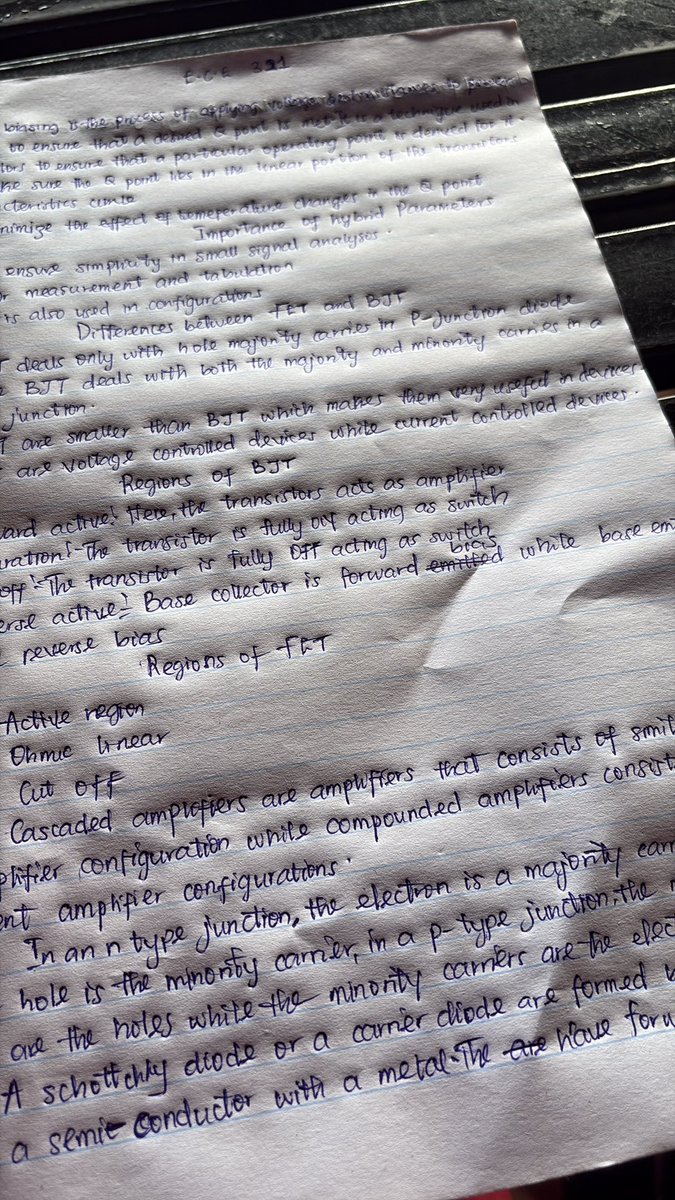 ECE 321
biasing is the process of applying voltage & to
to ensure that a desired Q point is met. It is a technique used in
tors to ensure that a particular operating point is derived for it.
ke sure the Q point lies in the linear portion of the transistors
cteristics curve
nimize the effect of temperature changes in the Q point
Importance of hybrid Parameters
ensure simplicity in small signal analyses.
or measurement and tabulation
is also used in configurations
Differences between FET and BJT
T deals only with hole majority carries in P-Junction diode
e BJT deals with both the majority and minority carries in a
junction.
T are smaller than BJT which makes them very useful in devices
are voltage controlled devices while current controlled devices.
Regions of BJT
ward active:- Here, the transistors acts as amplifier
uration:- The transistor is fully on acting as switch
off:- The transistor is fully Off acting as switch
erse active:- Base collector is forward emitted bias while base emi
reverse bias
Regions of FET
Active region
Ohmic linear
Cut off
Cascaded amplifiers are amplifiers that consists of smil
plifier configuration while compounded amplifiers consist
ent amplifier configurations.
In an n type junction, the electron is a majority carr
hole is the minority carrier, in a p-type junction, the m
are the holes while the minority carriers are the elec
A schottchky diode or a carrier diode are formed
a semi-conductor with a metal. The are have forw